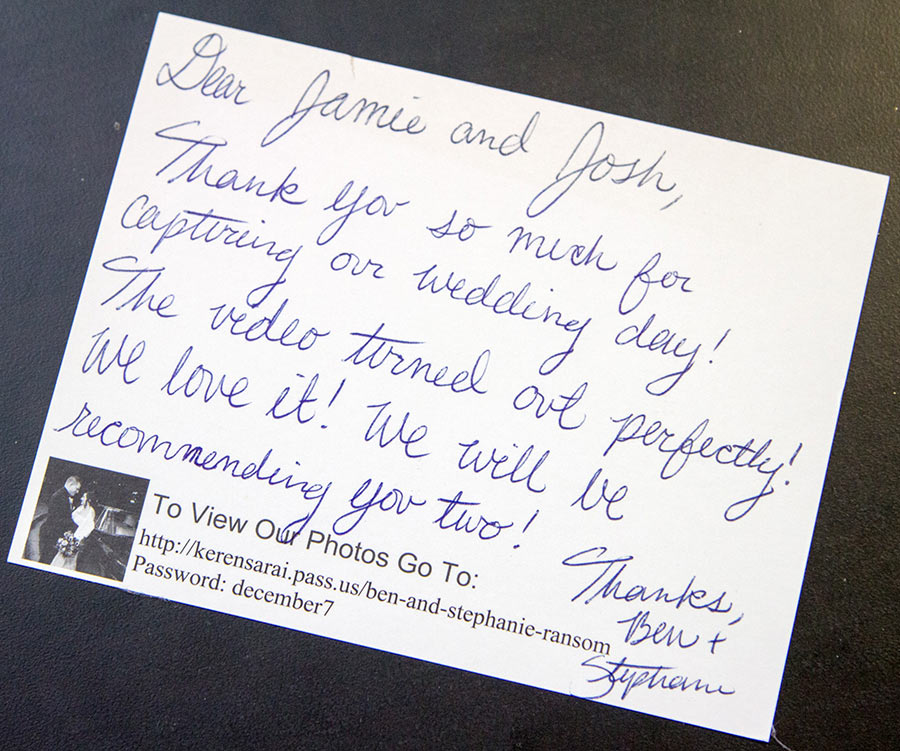 Dear Jamie and Josh,
Thank you so much for
capturing our wedding day!
The video turned out perfectly!
We love it! We will be
recommending you two!
To View Our Photos Go To:
http://kerensarai.pass.us/ben-and-stephanie-ransom
Password: december7
Thanks,
Ben +
Stephanie